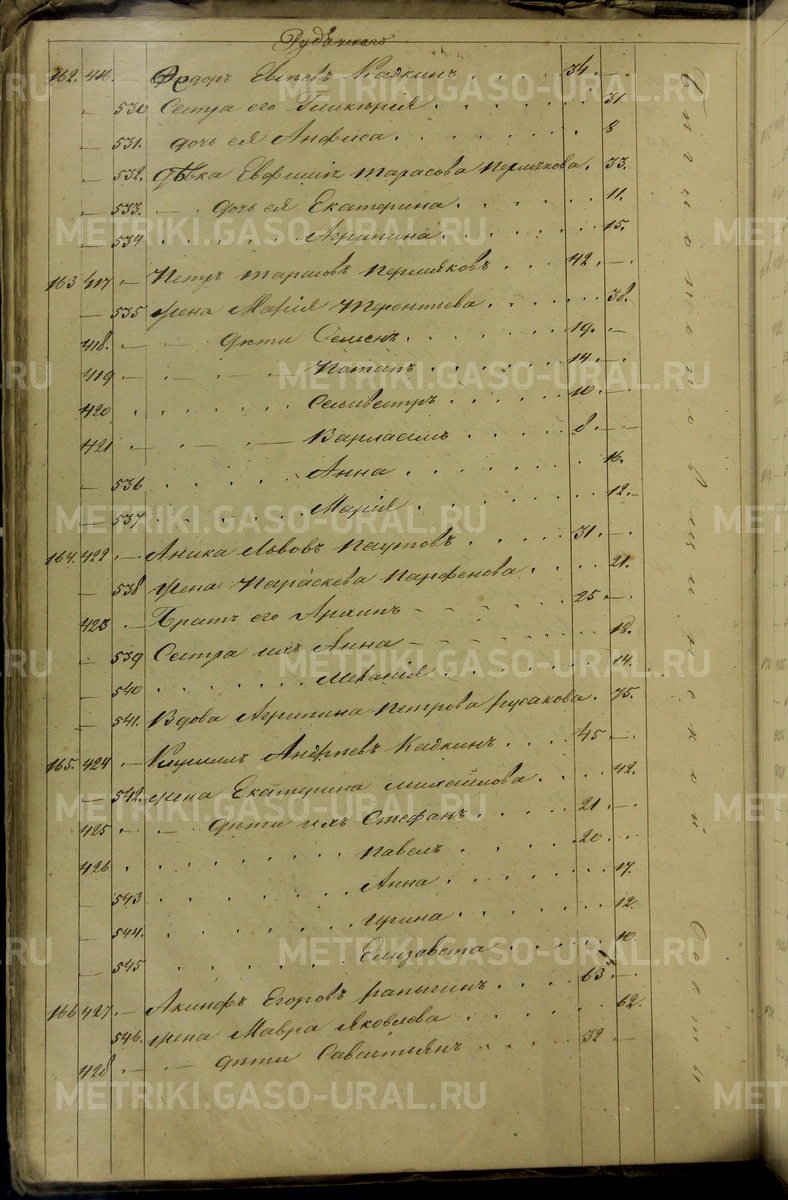 Рудянскаго
162. 416. — Ѳедоръ Евпѣевъ Кадкинъ 34. —
— 530 Сестра его Гликерія 31.
— 531. дочь ея Анфиса 8
— 532. дѣвка Евфимія Тарасова Пермякова. 33.
— 533. — дочь ея Екатерина 11.
— 534 Агрипина 15.
163 417 — Петръ Тарасовъ Пермяковъ 42. —
— 535 жена Марія Терентьева 38.
418. — — дѣти Семенъ 19. —
419 — Потапъ 14. —
420 Силивестръ 10. —
421 — Варлаамъ 8. —
— 536 Анна 16.
— 537 Марія 12. —
164. 422. — Аника Львовъ Паутовъ 31. —
— 538 жена Параскева Парфенова 21.
423 — Братъ его Архипъ 25 —
— 539 Сестра ихъ Анна 18.
— 540 Меланія 14.
— 541. Вдова Агрипина Петрова Русакова. 75.
165. 424 — Кирилъ Андреевъ Кадкинъ 45 —
— 542. жена Екатерина Михайлова 42.
425 — дѣти ихъ Стефанъ 21 —
426 Павелъ 20
— 543 Анна 17.
— 544. Ирина 12.
— 545 Елизавета 10
166 427. — Акинфъ Егоровъ 63 —
— 546. жена Мавра Яковлева 62.
428 — — дѣти Савастьянъ 32 —
METRIKI.GASO-URAL.RU